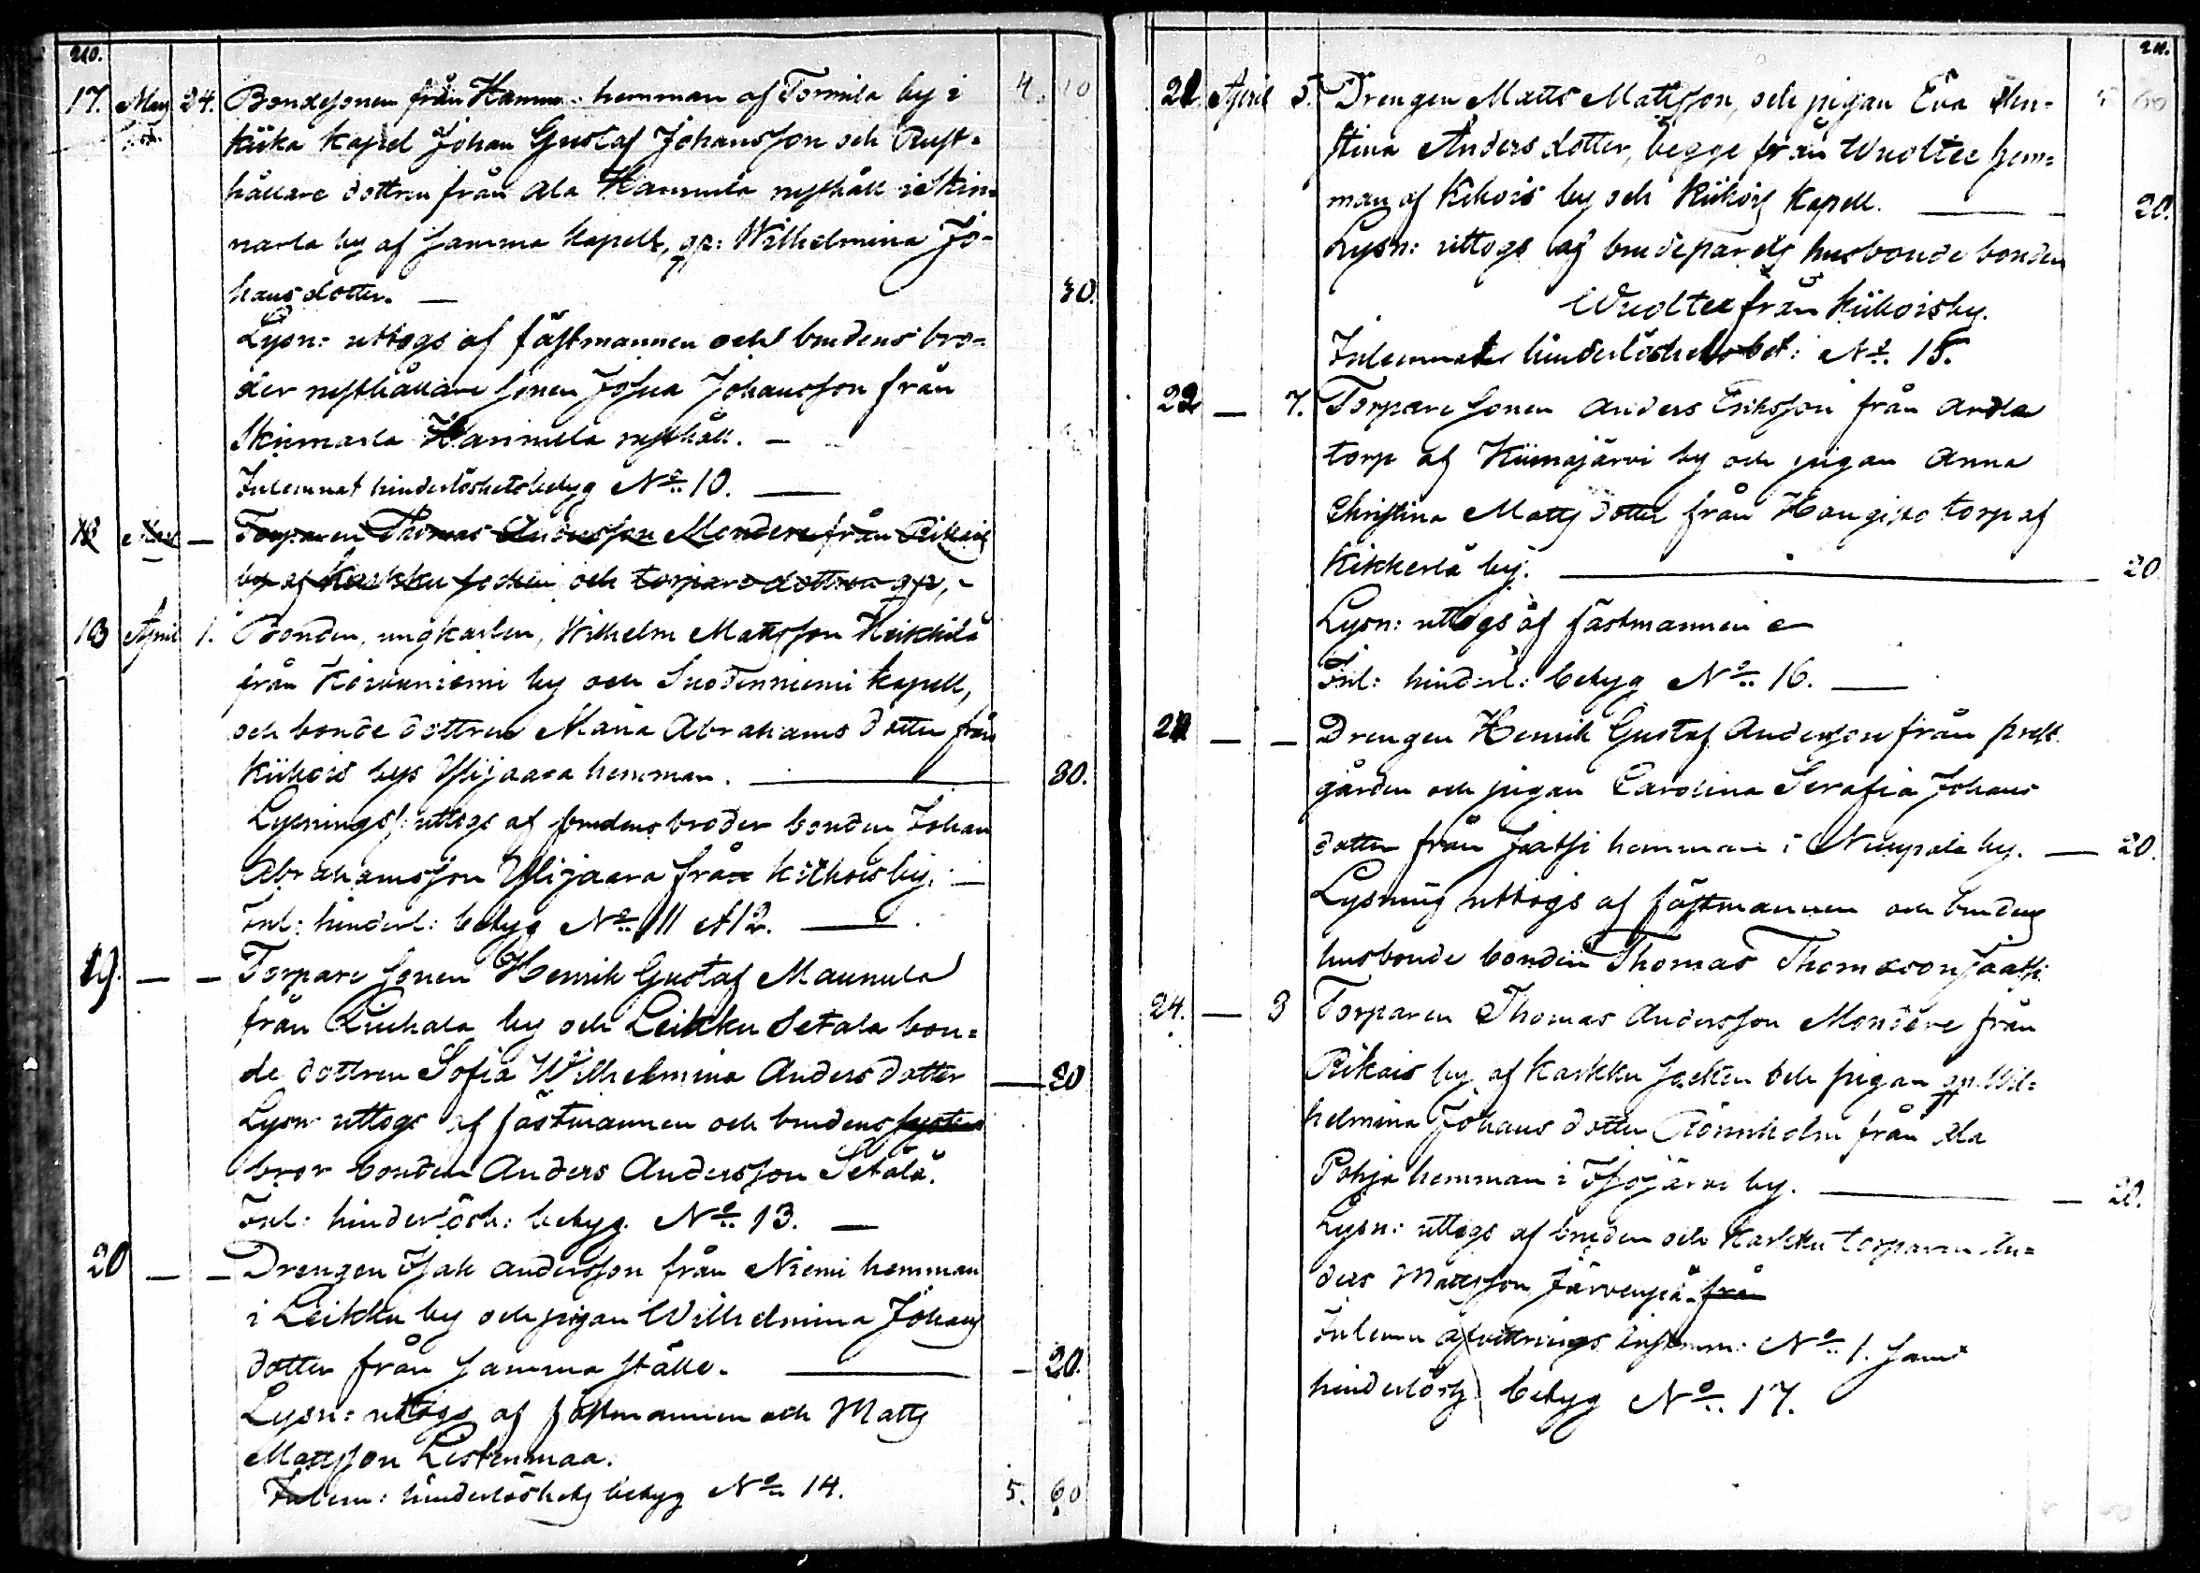 210.
17. Mars 24. Bondesonen från Hannu hemman af Tormila by i 4. 10
Kiika Kapel Johan Gustaf Johansson och Rust-
hållare dottren från Ala Hannula rusthåll i Skin-
narla by af samma Kapell, gp: Wilhelmina Jo-
hansdotter. — 30.
Lysn: uttogs af fästmannen och brudens bro-
der rusthållare sonen Josua Johansson från
Skinnarla Hannula rusthåll. —
Inlemnat hinderlöshetsbetyg No 10. —
18 Mars — Torparen Thomas Andersson Mondere från Riikais
by af Karkku socken och torpare dottren gp,
18 April 1. Bonden, ungkarlen, Wilhelm Mattsson Heikkilä
från Koivuniemi by och Suodenniemi Kapell,
och bonde dottren Maria Abrahams dotter från
Kiikois bys Ylijaara hemman. — 30.
Lysnings: uttogs af brudens broder bonden Johan
Abrahamsson Ylijaara från Kiikois by. —
Inl: hinderl: betyg No 11 & 12. —
19. — — Torpare sonen Henrik Gustaf Maunula
från Liuhala by och Leikku Setälä bon-
de dottren Sofia Wilhelmina Anders dotter — 20
Lysn uttogs af fästmannen och brudens syster
bror bonden Anders Andersson Setälä.
Inl: hinderlösh: betyg No 13. —
20 — — Drengen Isak Andersson från Niemi hemman
i Leikku by och pigan Wilhelmina Johans
dotter från samma ställe. — 20.
Lysn: uttogs af fästmannen och Matts
Mattsson Liestenmaa.
Inlem: hinderlöshets betyg No 14. 5. 60
211.
21. April 5. Drengen Matts Mattsson, och pigan Eva Chri- 5 60
stina Anders dotter, begge från Wuoltee hem-
man af Kikois by och Kiikois Kapell. — 20.
Lysn: uttogs af brudeparets husbonde bonden
Wuoltee från Kiikois by.
Inlemnat hinderlöshets bet: No 15.
22 — 7. Torpare sonen Anders Eriksson från Ardla
torp af Kiimajärvi by och pigan Anna
Christina Matts dotter från Hangisto torp af
Kikkerlä by. — 20.
Lysn: uttogs af fästmannen
Inl: hinderl: betyg No 16. —
— — Drengen Henrik Gustaf Andersson från prest-
gården och pigan Carolina Serafia Johans
dotter från Jaatsi hemman i Nuupala by. — 20.
Lysning uttogs af fästmannen och brudens
husbonde bonden Thomas Thomasson Jaatsi.
24. — 3 Torparen Thomas Andersson Mondere från
Riikais by af Karkku socken och pigan gp. Wil-
helmina Johans dotter Rönnholm från Ala
Pohja hemman i Isojärvi by. — 20.
Lysn: uttogs af bruden och Karkku torparen An-
ders Mattsson Järvenpä från
Inlemn afvittrings instrum: No 1. samt
hinderlösh betyg No 17.